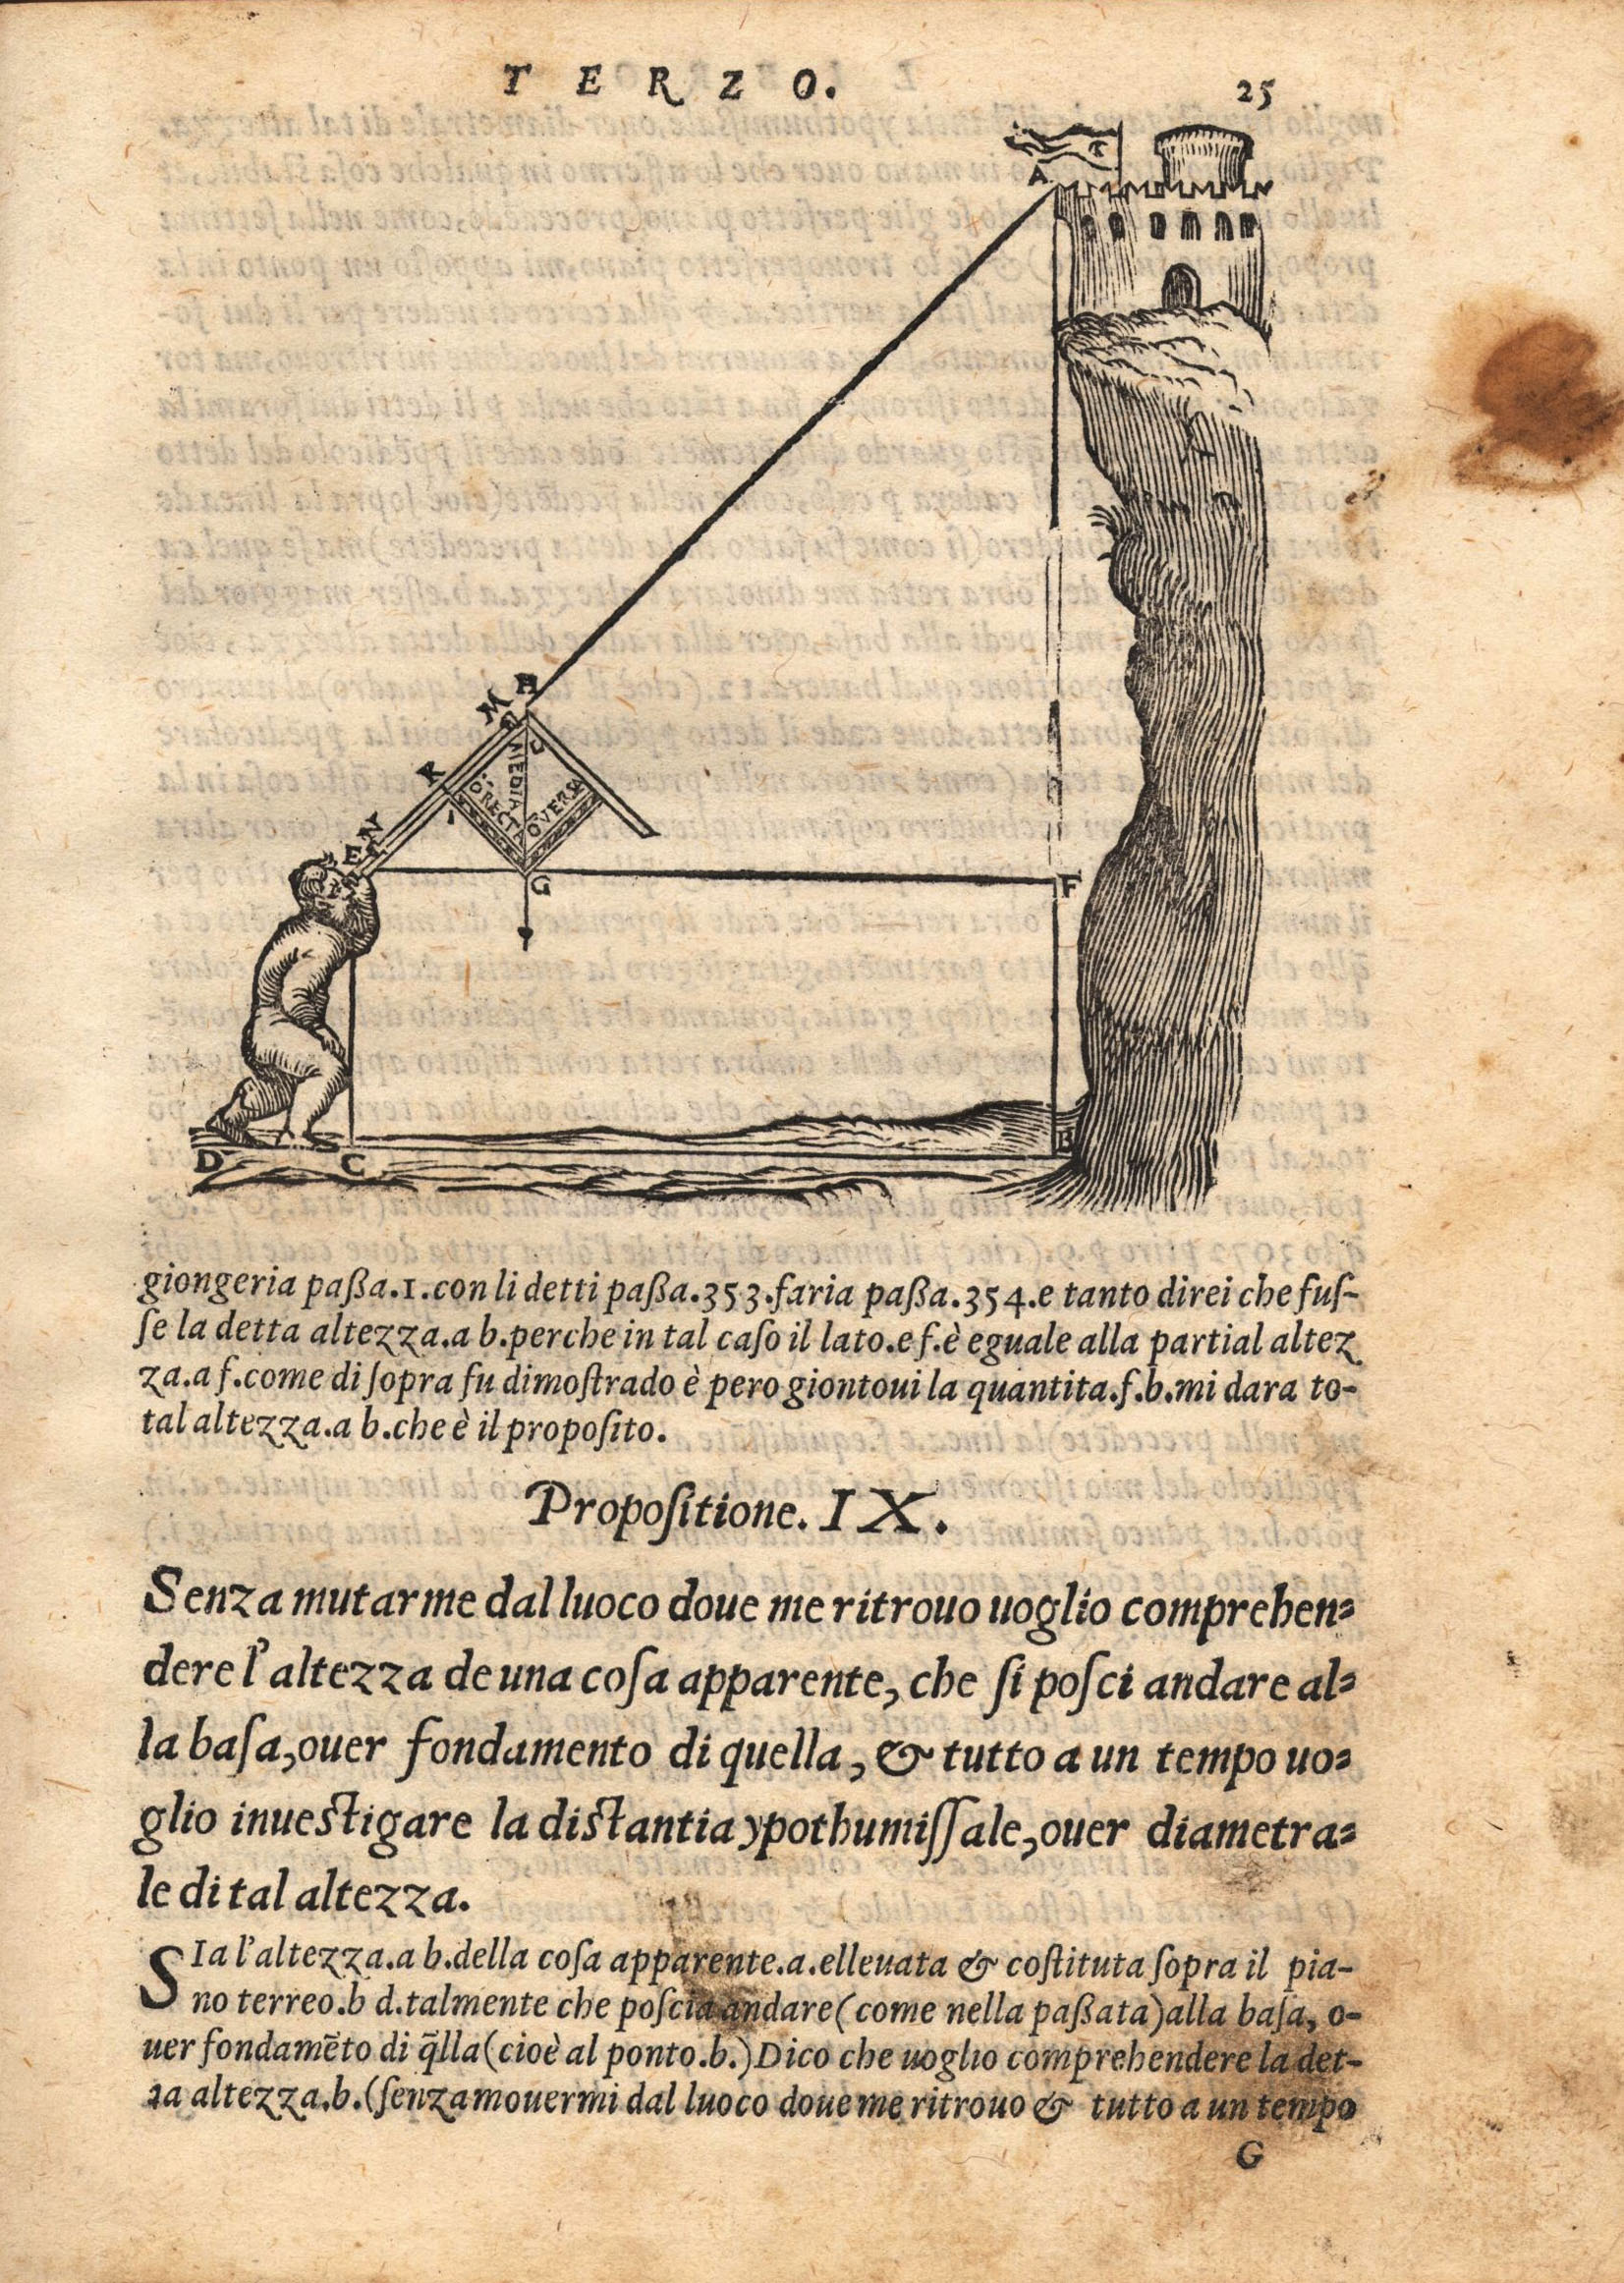 TERZO. 25
A
M H
K
E N
MEDIA
O.RECTA
O.VERSA
G
F
B
D C
giongeria paßa.1.con li detti paßa.353.faria paßa.354.e tanto direi che fuſ-
ſe la detta altezza.a b.perche in tal caſo il lato.e f.è eguale alla partial altez
za.a f.come di ſopra fu dimoſtrado è pero giontoui la quantita.f.b.mi dara to-
tal altezza.a b.che è il propoſito.
Propoſitione. IX.
Senza mutarme dal luoco doue me ritrouo uoglio comprehen=
dere l'altezza de una coſa apparente, che ſi poſci andare al=
la baſa,ouer fondamento di quella, & tutto a un tempo uo=
glio inueſtigare la diſtantia ypothumiſſale,ouer diametra=
le di tal altezza.
SIa l'altezza.a b.della coſa apparente.a.elleuata & coſtituta ſopra il pia-
no terreo.b d.talmente che poſcia andare(come nella paßata)alla baſa, o-
uer fondamẽto di q̃lla(cioè al ponto.b.)Dico che uoglio comprehendere la det-
ta altezza.b.(ſenza mouermi dal luoco doue me ritrouo & tutto a un tempo
G